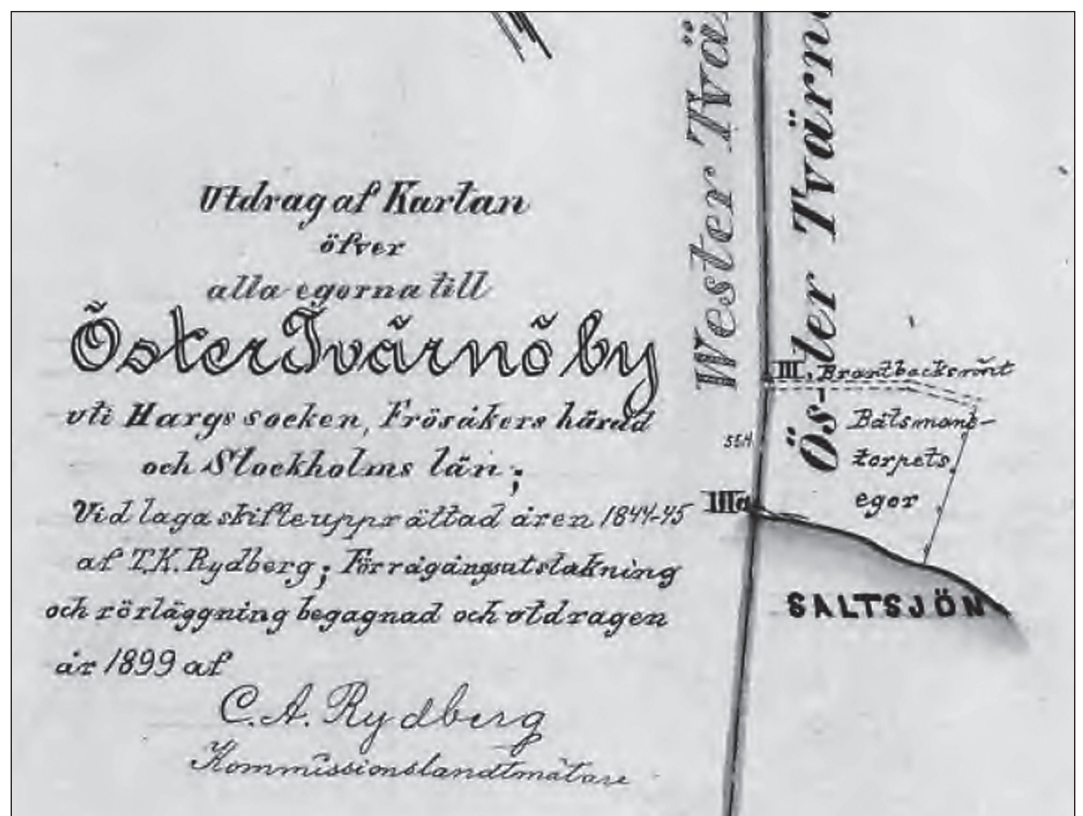 Utdrag af Kartan
öfver
alla egorna till
Öster Tvärnö by
uti Hargs socken, Frösåkers härad
och Stockholms län;
Vid laga skifte upprättad åren 1844-45
af T.K. Rydberg; För rågångsutstakning
och rörläggning begagnad och utdragen
år 1899 af
C. A. Rydberg
Kommissionslandtmätare
Wester Tvär
Öster Tvärn
III. Brantbacksrönt
Båtsmans-
torpets
egor
554
IIIa
SALTSJÖN